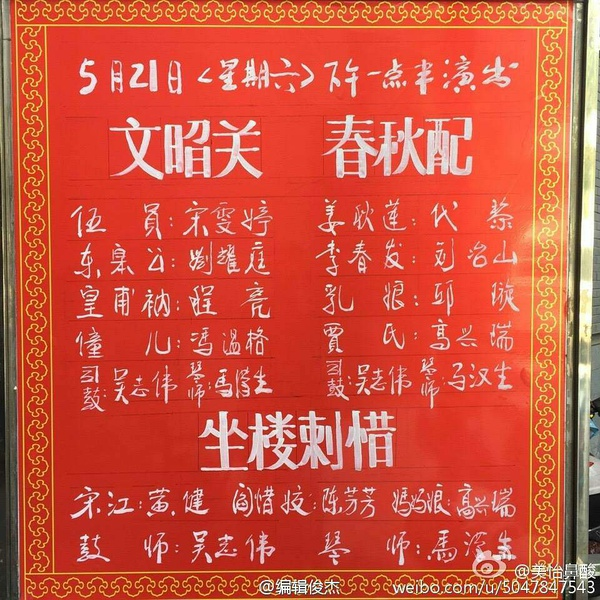 5月21日<星期六>下午一点半演出
文昭关 春秋配
伍員:宋雯婷 姜秋蓮:代黎
东皋公:劉耀庭 李春发:刘岩山
皇甫衲:程亮 乳娘:邱璇
僮儿:冯温格 賈氏:高兴瑞
司鼓:吴志伟 琴师:馬漢生 司鼓:吴志伟 琴师:马汉生
坐楼刺惜
宋江:黄健 阎惜姣:陈芳芳 媽妈娘:高兴瑞
鼓师:吴志伟 琴师:馬漢生
@美怡鼻酸
@编辑俊杰 weibo.com/u/5047847543